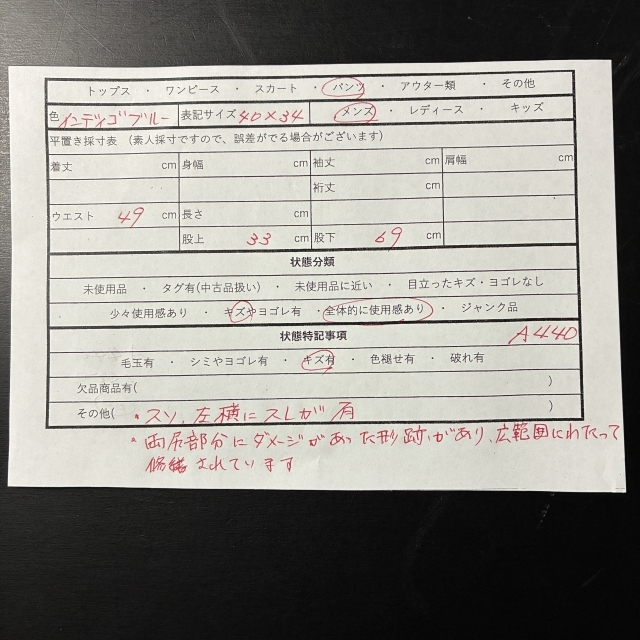 トップス ・ ワンピース ・ スカート ・ パンツ ・ アウター類 ・ その他
色 インディゴブルー 表記サイズ 40×34 メンズ ・ レディース ・ キッズ
平置き採寸表 (素人採寸ですので、誤差がでる場合がございます)
着丈 cm 身幅 cm 袖丈 cm 肩幅 cm
裄丈 cm
ウエスト 49 cm 長さ cm
股上 33 cm 股下 69 cm
状態分類
未使用品 ・ タグ有(中古品扱い) ・ 未使用品に近い ・ 目立ったキズ・ヨゴレなし
少々使用感あり ・ キズやヨゴレ有 ・全体的に使用感あり ・ ジャンク品
状態特記事項 A440
毛玉有 ・ シミやヨゴレ有 ・ キズ有 ・ 色褪せ有 ・ 破れ有
欠品商品有( )
その他( ・スソ、左横にスレが有 )
・両尻部分にダメージがあった形跡があり、広範囲にわたって
修繕されています